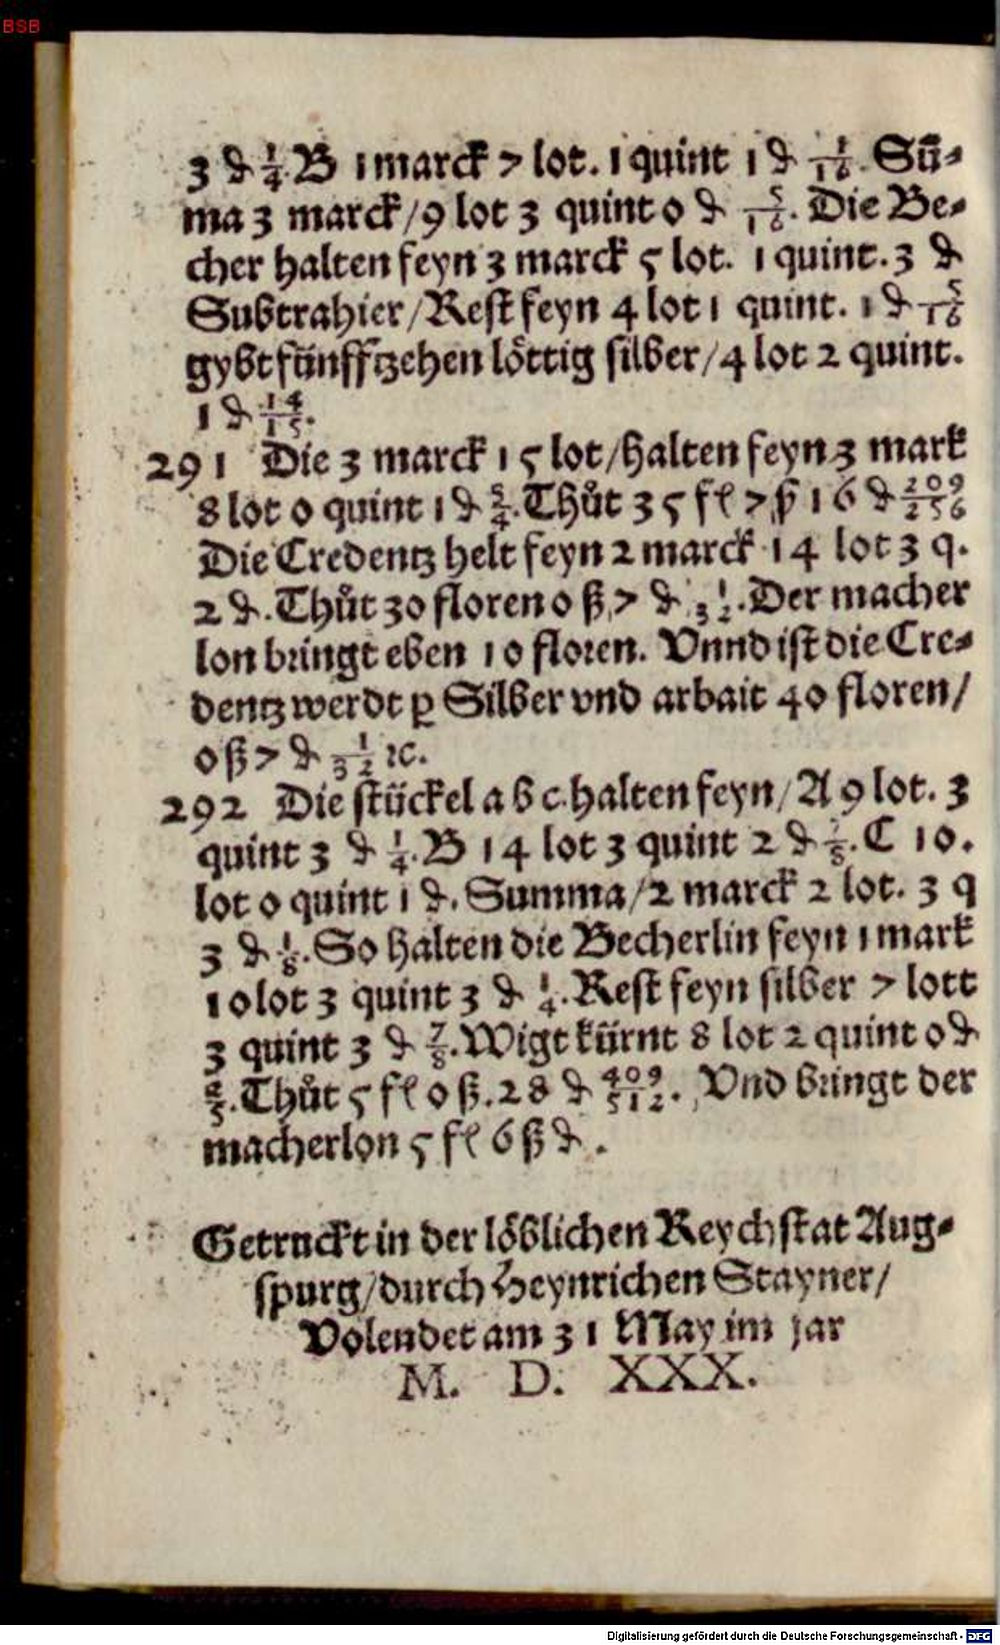 BSB
3 ₰ 1/4. B 1 marck 7 lot. 1 quint 1 ₰ 1/16. Sū⸗
ma 3 marck/9 lot 3 quint 0 ₰ 5/16. Die Be⸗
cher halten feyn 3 marck 5 lot. 1 quint. 3 ₰
Subtrahier/Rest feyn 4 lot 1 quint. 1 ₰ 5/16
gybt fünfftzehen löttig silber/4 lot 2 quint.
1 ₰ 14/15.
291 Die 3 marck 15 lot/halten feyn 3 mark
8 lot 0 quint 1 ₰ 5/4. Thůt 35 fl 7 ß 16 ₰ 209/256
Die Credentz helt feyn 2 marck 14 lot 3 q.
2 ₰. Thůt 30 floren 0 ß 7 ₰ 1/32. Der macher
lon bringt eben 10 floren. Vnnd ist die Cre⸗
dentz werdt ꝑ Silber vnd arbait 40 floren/
0 ß 7 ₰ 1/32 ꝛc.
292 Die stückel a b c halten feyn/A 9 lot. 3
quint 3 ₰ 1/4. B 14 lot 3 quint 2 ₰ 7/8. C 10.
lot 0 quint 1 ₰. Summa/2 marck 2 lot. 3 q
3 ₰ 1/8. So halten die Becherlin feyn 1 mark
10 lot 3 quint 3 ₰ 1/4. Rest feyn silber 7 lott
3 quint 3 ₰ 7/8. Wigt kürnt 8 lot 2 quint 0 ₰
2/5. Thůt 5 fl 0 ß. 28 ₰ 409/512. Vnd bringt der
macherlon 5 fl 6 ß ₰.
Getruckt in der löblichen Reychstat Aug⸗
spurg/durch Heynrichen Stayner/
Volendet am 31 May im jar
M. D. XXX.
Digitalisierung gefördert durch die Deutsche Forschungsgemeinschaft - DFG